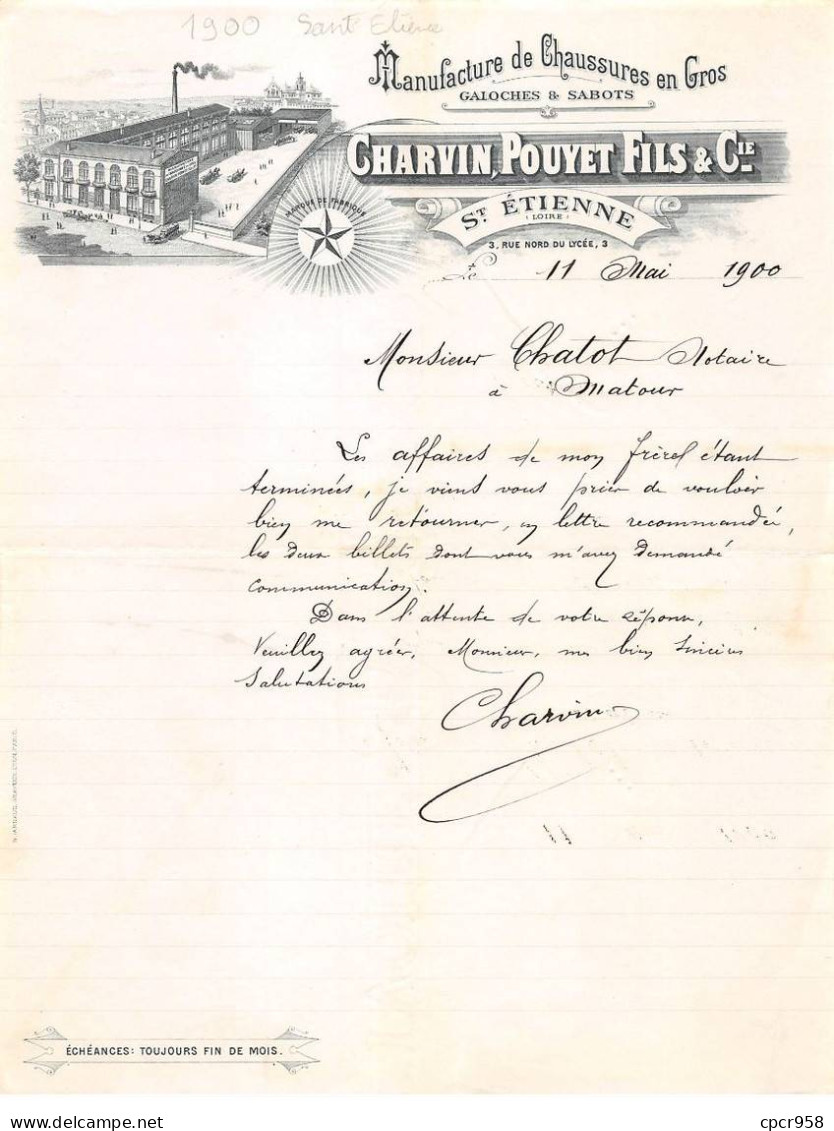 1900 Sant Etienne
Manufacture de Chaussures en Gros
GALOCHES & SABOTS
CHARVIN, POUYET FILS & CIE
ST ÉTIENNE
(LOIRE)
MARQUE DE FABRIQUE
3, RUE NORD DU LYCÉE, 3
Le 11 Mai 1900
Monsieur Chatot Notaire
à Matour
Les affaires de mon frère étant
terminées, je viens vous prier de vouloir
bien me retourner, en lettre recommandée,
les deux billets dont vous m'avez demandé
communication.
Dans l'attente de votre réponse,
Veuillez agréer, Monsieur, mes bien sincères
Salutations
Charvin
ÉCHÉANCES: TOUJOURS FIN DE MOIS.
cpcr958